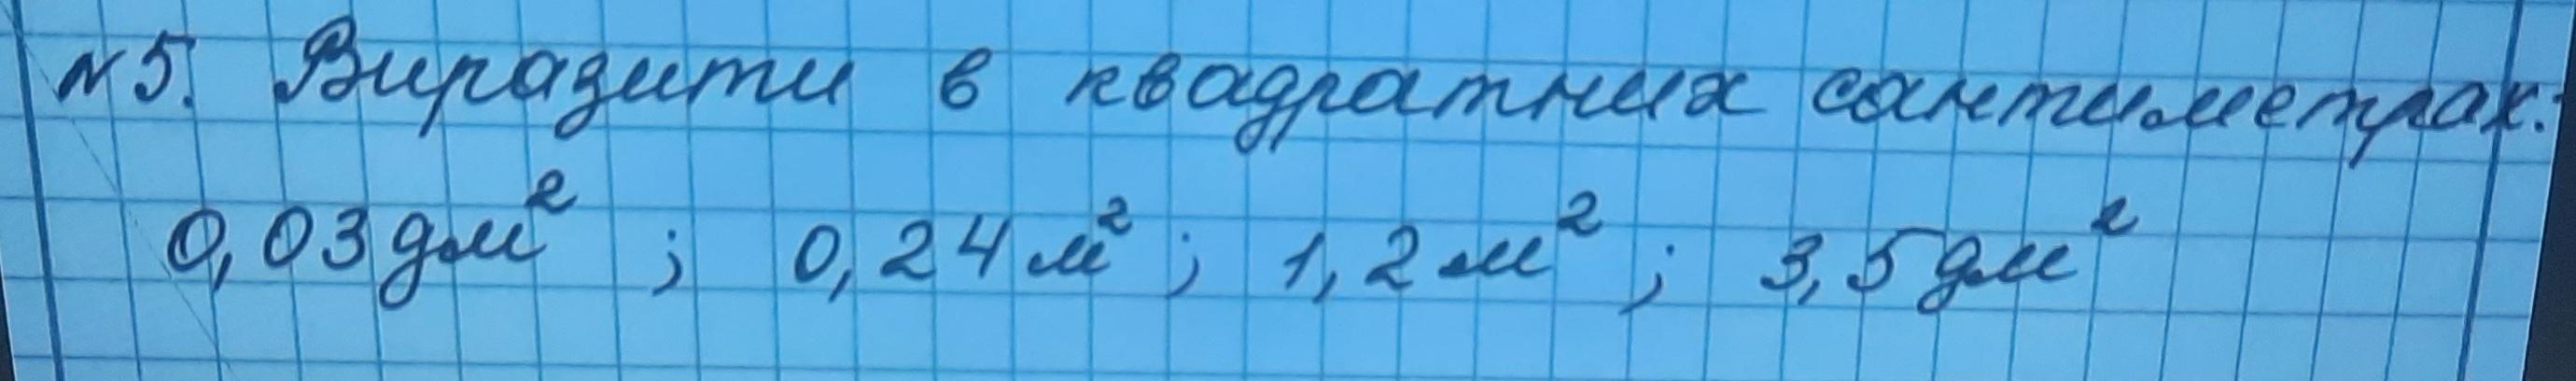 №5. Виразити в квадратних сантиметрах:
0,03дм² ; 0,24м² ; 1,2м² ; 3,5дм²